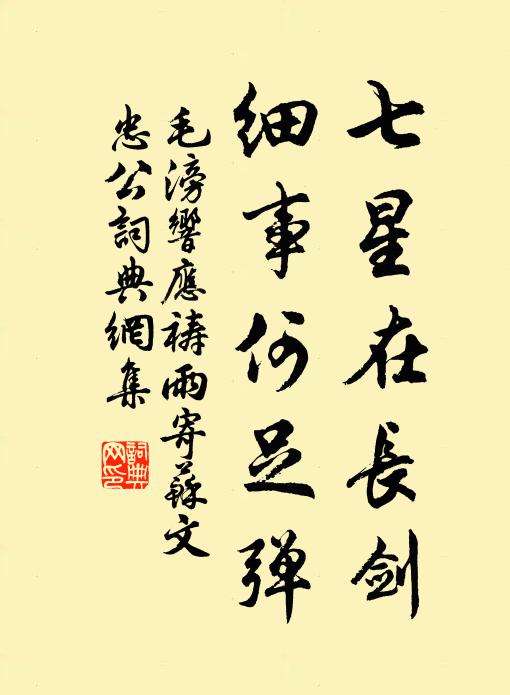 七星在長劍
細事何足彈
毛滂響應禱雨寄蘇文
忠公詞典網集
詞典
网印